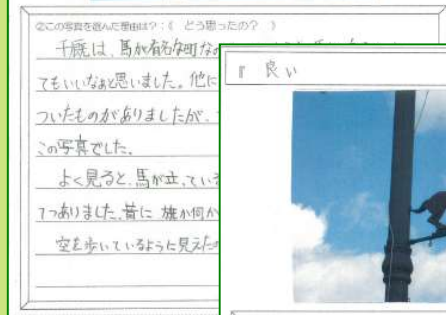 ②この写真を選んだ理由は?:( どう思ったの? )
千厩は、馬が有名な町な
てもいいなあと思いました。他に
ついたものがありましたが、
この写真でした。
よく見ると、馬が立っている
7つありました。昔に 旗か何か
空を歩いているように見えた
『 良い